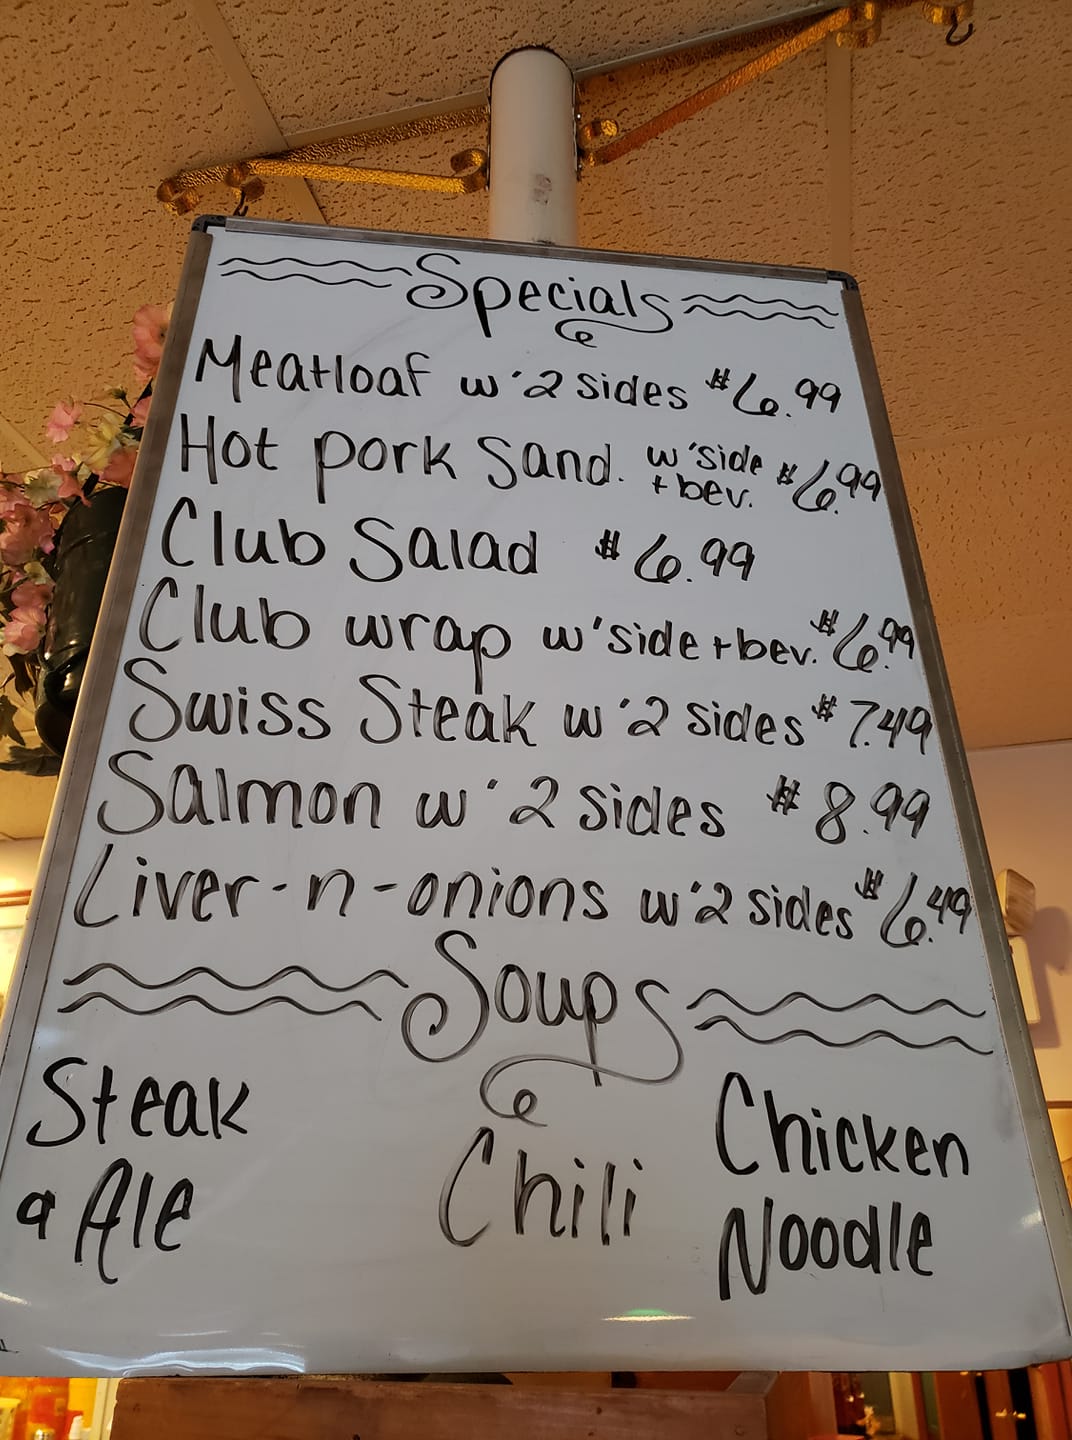 Specials
Meatloaf w' 2 sides $6.99
Hot pork Sand. w' side + bev. $6.99
Club Salad $6.99
Club wrap w' side + bev. $6.99
Swiss Steak w' 2 sides $7.49
Salmon w' 2 sides $8.99
Liver-n-onions w' 2 sides $6.49
Soups
Steak
a Ale
Chili
Chicken
Noodle